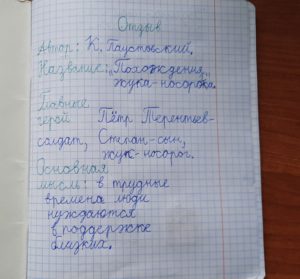 Отзыв
Автор: К. Паустовский,
Название: „Похождения
жука-носорога.
Главные
герой Пётр Терентьев-
солдат, Степан-сын,
жук-носорог.
Основная
мысль: в трудные
времена люди
нуждаются
в поддержке
близких.